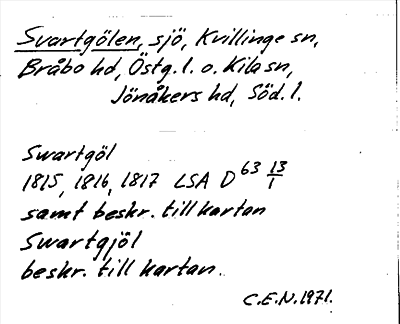 Svartgölen, sjö, Kvillinge sn,
Bråbo hd, Östg. l. o. Kila sn,
Jönåkers hd, Söd. l.
Swartgöl
1815, 1816, 1817 LSA D 63 13/1
samt beskr. till kartan
Swartgjöl
beskr. till kartan.
C.E.N. 1971.